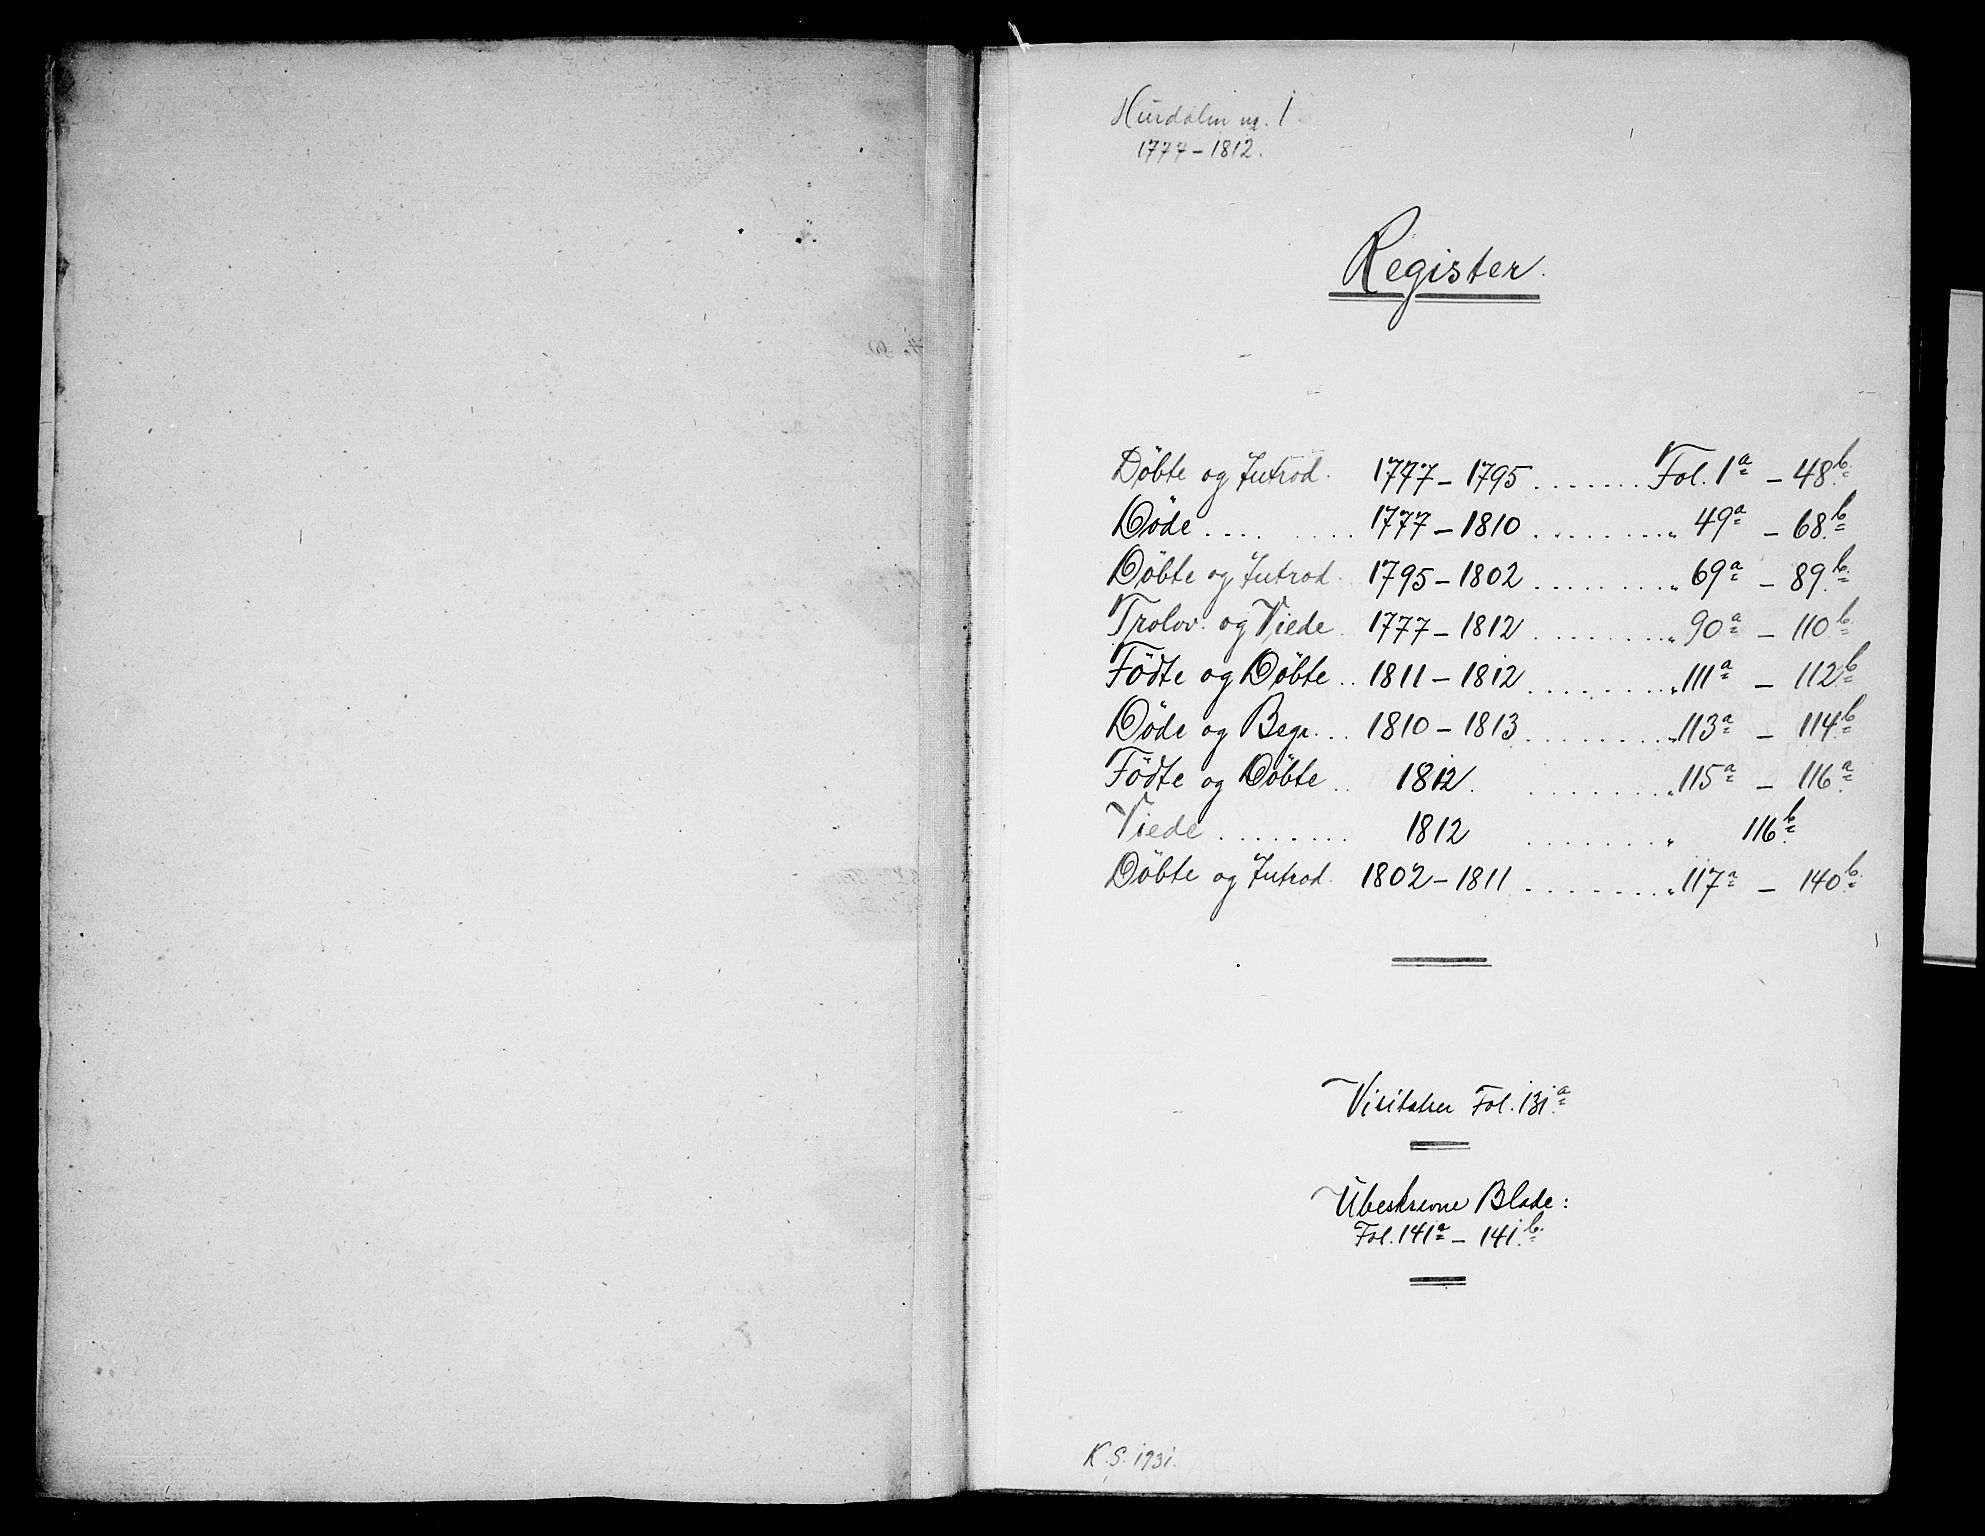 Hurdalen nr. 1
1777 – 1812.
Register.
Döbte og Introd. 1777 – 1795 ....... Fol. 1a – 48b.
Döde .... .... 1777 – 1810 ......... „ 49a – 68b
Döbte og Introd. 1795 – 1802 ......... „ 69a – 89b.
Trolov. og Viede. 1777 – 1812 ......... „ 90a – 110b.
Födte og Döbte .. 1811 – 1812 ......... „ 111a – 112b
Döde og Begr. .. 1810 – 1813 ......... „ 113a – 114b
Födte og Döbte .. 1812. ......... „ 115a – 116a
Viede ........ 1812 ......... „ 116b
Döbte og Introd. 1802 – 1811 ......... „ 117a – 140b.
Visitatser Fol. 131a
Ubeskrevne Blade:
Fol. 141a – 141b.
K. S. 1931.